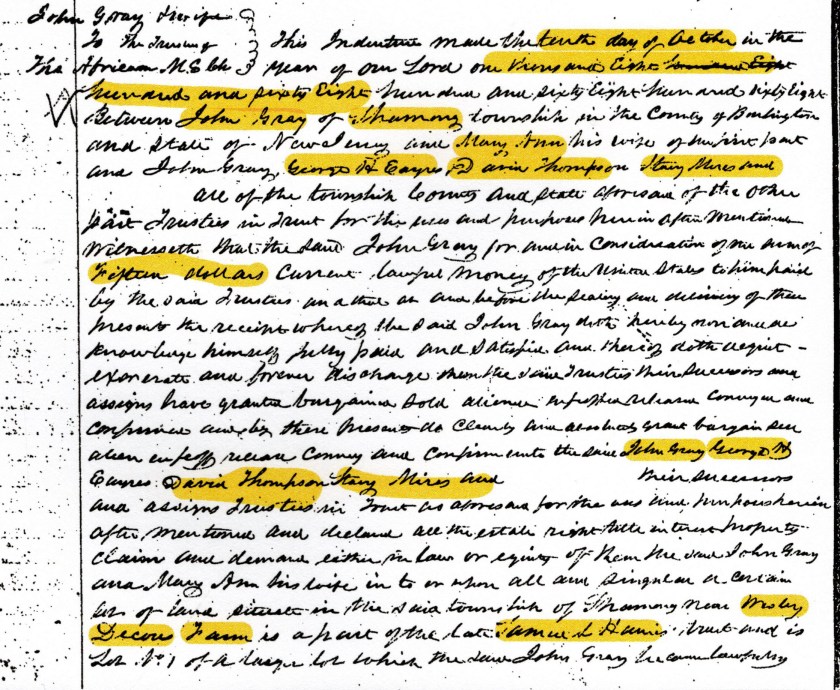 John Gray & wife
To The Trustees of This Indenture made the tenth day of October in the
The African M.E Ch year of our Lord one thousand Eight hundred Eight
hundred and sixty Eight hundred and sixty Eight hundred sixty Eight
Between John Gray of Shamong township in the County of Burlington
and State of New Jersey and Mary Ann his wife of the first part
and John Gray, George H Eayres David Thompson Stacy Mires and
are of the township County and State aforesaid of the other
part Trustees in Trust for the uses and purposes herein after mentioned
Witnesseth that the said John Gray for and in Consideration of the sum of
Fifteen dollars Current lawful money of the United States to him paid
by the said Trustees and at and before the sealing and delivery of these
presents the receipt whereof the said John Gray doth hereby and ac
knowledge himself fully paid and satisfied and thereof doth acquit
exonerate and forever discharge them the said Trustees their successors and
assigns have granted bargained sold aliened enfeoffed released conveyed and
confirmed and by these presents do clearly and absolutely grant bargain sell
alien enfeoff release convey and confirm unto the said John Gray George H
Eayres David Thompson Stacy Mires and their successors
and assigns Trustees in Trust as aforesaid for the uses and purposes herein
after mentioned and declared all the estate right title interest property
claim and demand either in law or equity of them the said John Gray
and Mary Ann his wife in to or upon all and singular a certain
lot of land situate in the said township of Shamong near Wesley
Decous Farm is a part of the late Samuel Harris tract and is
Lot No 1 of a larger lot which the said John Gray became lawfully